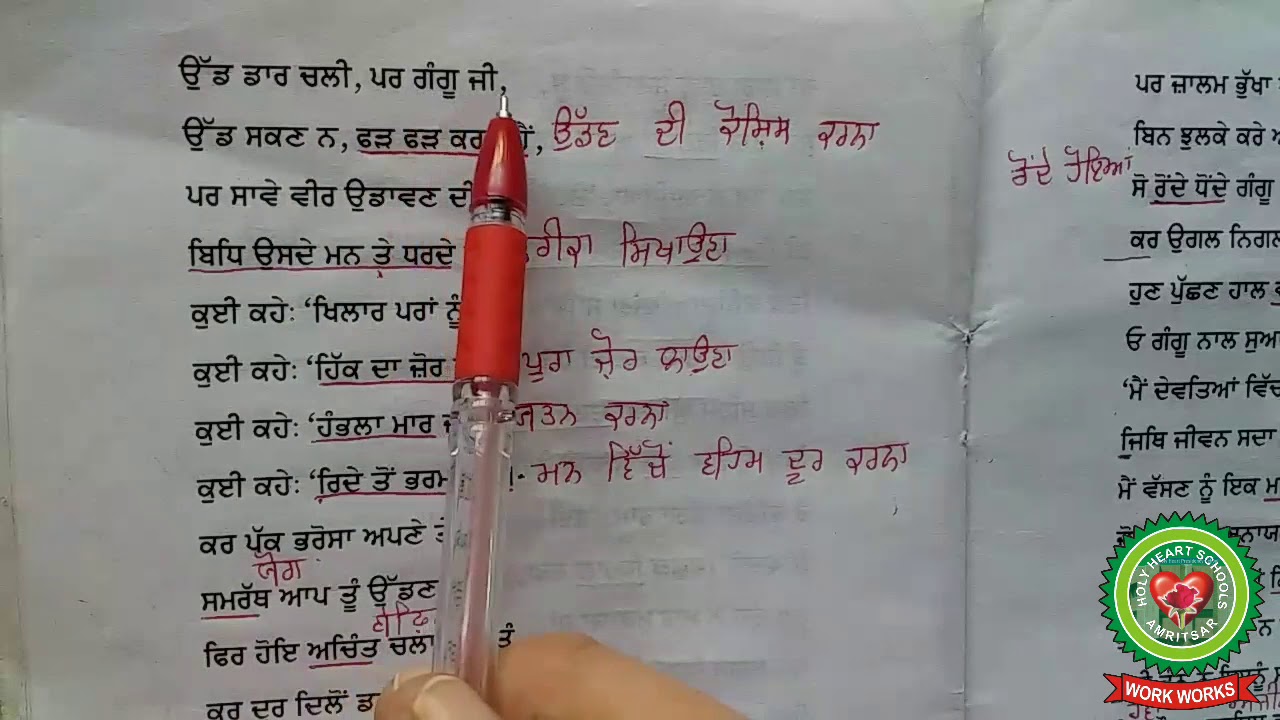 ਉੱਡ ਡਾਰ ਚਲੀ, ਪਰ ਗੰਗੂ ਜੀ,
ਉੱਡ ਸਕਣ ਨ, ਫੜ ਫੜ ਕਰ , ਉੱਡਣ ਦੀ ਕੋਸ਼ਿਸ਼ ਕਰਨਾ
ਪਰ ਸਾਵੇ ਵੀਰ ਉਡਾਵਣ ਦੀ
ਬਿਧਿ ਉਸਦੇ ਮਨ ਤੇ ਧਰਦੇ ਸਿਖਾਉਣਾ
ਕੁਈ ਕਹੇ: ‘ਖਿਲਾਰ ਪਰਾਂ ਨੂੰ
ਕੁਈ ਕਹੇ: ‘ਹਿੱਕ ਦਾ ਜ਼ੋਰ ਪੂਰਾ ਜ਼ੋਰ ਲਾਉਣਾ
ਕੁਈ ਕਹੇ: ‘ਹੰਭਲਾ ਮਾਰ ਜਤਨ ਕਰਨਾ
ਕੁਈ ਕਹੇ: ‘ਰਿਦੇ ਤੋਂ ਭਰਮ !- ਮਨ ਵਿੱਚੋਂ ਵਹਿਮ ਦੂਰ ਕਰਨਾ
ਕਰ ਪੱਕ ਭਰੋਸਾ ਅਪਣੇ ਤੇ
ਯੋਗ
ਸਮਰੱਥ ਆਪ ਤੂੰ ਉੱਡਣ
ਫਿਰ ਹੋਇ ਅਚਿੰਤ ਚਲਾ
ਕਰ ਦੂਰ ਦਿਲੋਂ
ਪਰ ਜ਼ਾਲਮ ਭੁੱਖਾ
ਬਿਨ ਝੁਲਕੇ ਕਰੇ
ਰੋਂਦੇ ਹੋਇਆਂ
ਸੋ ਰੋਂਦੇ ਧੋਂਦੇ ਗੰਗੂ
ਕਰ ਉਗਲ ਨਿਗਲ
ਹੁਣ ਪੁੱਛਣ ਹਾਲ
ਓ ਗੰਗੂ ਨਾਲ ਸੁਆ
‘ਮੈਂ ਦੇਵਤਿਆਂ ਵਿੱਚ
ਜਿਥਿ ਜੀਵਨ ਸਦਾ
ਮੈਂ ਵੱਸਣ ਨੂੰ ਇਕ
HOLY HEART SCHOOLS
AMRITSAR
WORK WORKS